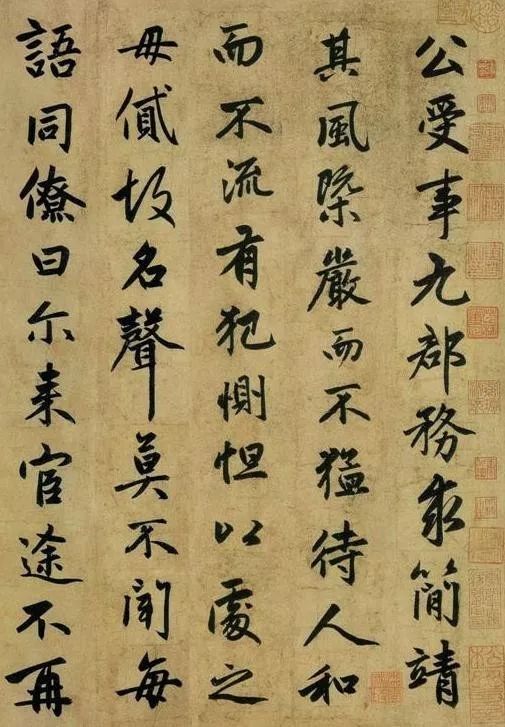 公受事九郡務求簡靖
其風槩嚴而不猛待人和
而不流有犯惻怛以處之
毋貳故名聲莫不聞每
語同僚曰尔来宦途不再